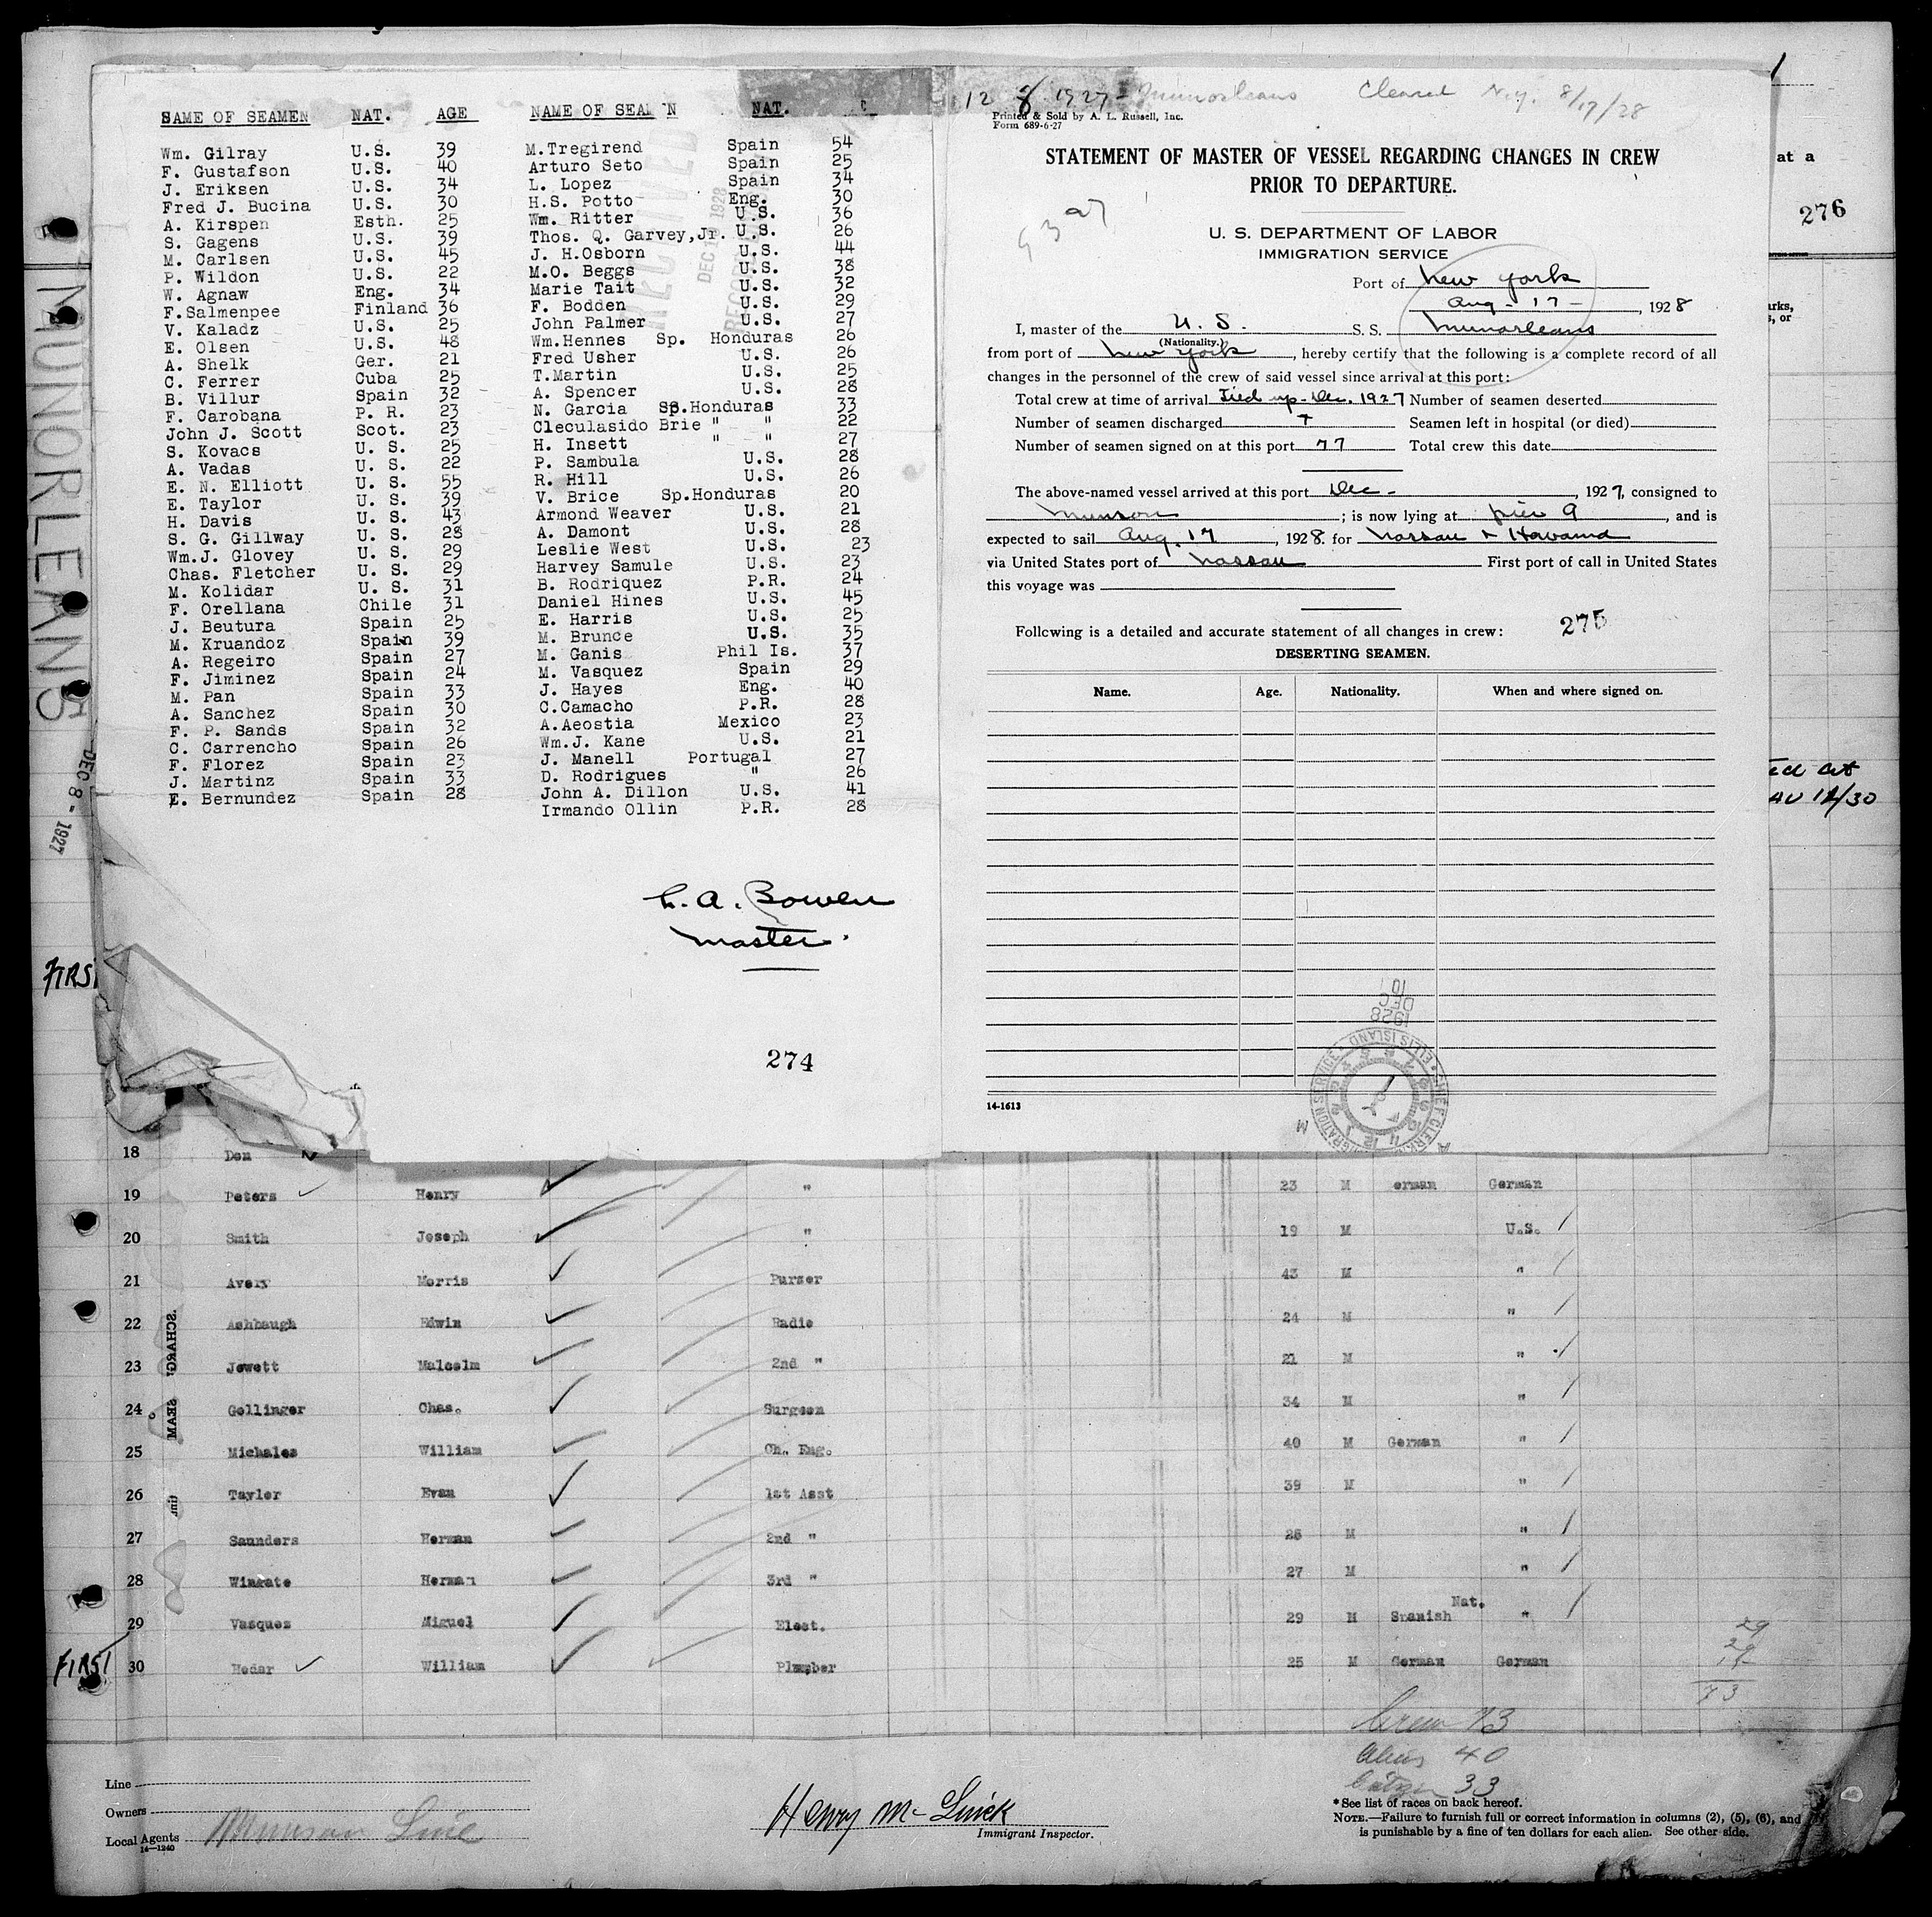 SAME OF SEAMEN NAT. AGE NAME OF SEAM N NAT.
Wm. Gilray U.S. 39 M.Tregirend Spain 54
F. Gustafson U.S. 40 Arturo Seto Spain 25
J. Eriksen U.S. 34 L. Lopez Spain 34
Fred J. Bucina U.S. 30 H.S. Potto Eng. 30
A. Kirspen Esth. 25 Wm. Ritter U.S. 36
S. Gagens U.S. 39 Thos. Q. Garvey,Jr. U.S. 26
M. Carlsen U.S. 45 J. H.Osborn U.S. 44
P. Wildon U.S. 22 M.O. Beggs U.S. 38
W. Agnaw Eng. 34 Marie Tait U.S. 32
F.Salmenpee Finland 36 F. Bodden U.S. 29
V. Kaladz U.S. 25 John Palmer U.S. 27
E. Olsen U.S. 48 Wm.Hennes Sp. Honduras 26
A. Shelk Ger. 21 Fred Usher U.S. 26
C. Ferrer Cuba 25 T.Martin U.S. 25
B. Villur Spain 32 A. Spencer U.S. 28
F. Carobana P. R. 23 N. Garcia Sp.Honduras 33
John J. Scott Scot. 23 Cleculasido Brie " " 22
S. Kovacs U. S. 25 H. Insett " " 27
A. Vadas U. S. 22 P. Sambula U.S. 28
E. N. Elliott U. S. 55 R. Hill U.S. 26
E. Taylor U. S. 39 V. Brice Sp.Honduras 20
H. Davis U. S. 43 Armond Weaver U.S. 21
S. G. Gillway U. S. 28 A. Damont U.S. 28
Wm.J. Glovey U. S. 29 Leslie West U.S. 23
Chas. Fletcher U. S. 29 Harvey Samule U.S. 23
M. Kolidar U. S. 31 B. Rodriquez P.R. 24
F. Orellana Chile 31 Daniel Hines U.S. 45
J. Beutura Spain 25 E. Harris U.S. 25
M. Kruandoz Spain 39 M. Brunce U.S. 35
A. Regeiro Spain 27 M. Ganis Phil Is. 37
F. Jiminez Spain 24 M. Vasquez Spain 29
M. Pan Spain 33 J. Hayes Eng. 40
A. Sanchez Spain 30 C.Camacho P.R. 28
F. P. Sands Spain 32 A.Aeostia Mexico 23
C. Carrencho Spain 26 Wm.J. Kane U.S. 21
F. Florez Spain 23 J. Manell Portugal 27
J. Martinz Spain 33 D. Rodrigues " 26
E. Bernundez Spain 28 John A. Dillon U.S. 41
Irmando Ollin P.R. 28
Bowen
master.
274
MUNORLEANS
DEC 8 - 1927
FIRST
12 8 1927 - Munorleans Cleared N.Y. 8/17/28
Printed & Sold by A. L. Russell, Inc.
Form 689-6-27
STATEMENT OF MASTER OF VESSEL REGARDING CHANGES IN CREW
PRIOR TO DEPARTURE.
U. S. DEPARTMENT OF LABOR
IMMIGRATION SERVICE
Port of New York
Aug. 17 - , 1928
I, master of the U. S. S. S. Munorleans
(Nationality.)
from port of New York, hereby certify that the following is a complete record of all
changes in the personnel of the crew of said vessel since arrival at this port:
Total crew at time of arrival Tied up - Dec. 1927 Number of seamen deserted
Number of seamen discharged Seamen left in hospital (or died)
Number of seamen signed on at this port 77 Total crew this date
The above-named vessel arrived at this port Dec - , 1927, consigned to
Munson ; is now lying at pier 9, and is
expected to sail Aug. 17, 1928. for Nassau + Havana
via United States port of Nassau First port of call in United States
this voyage was
Following is a detailed and accurate statement of all changes in crew: 275
DESERTING SEAMEN.
Name. Age. Nationality. When and where signed on.
1928
DEC
10
IMMIGRATION SERVICE ELLIS ISLAND CHIEF CLERK
14-1613
at a
276
18 Don
19 Peters Henry " 23 M erman German
20 Smith Joseph " 19 M U.S.
21 Avery Morris Purser 43 M "
22 Ashbaugh Edwin Radio 24 M "
23 Jewett Malcolm 2nd " 21 M "
24 Gollinger Chas. Surgeon 34 M "
25 Michales William Ch. Eng. 40 M German "
26 Taylor Evan 1st Asst 39 M "
27 Saunders Herman 2nd " 26 M "
28 Wingate Herman 3rd " 27 M "
29 Vasquez Miguel Elect. 29 M Spanish Nat. "
FIRST 30 Hedar William Plumber 25 M German German
73
Crew 73
Aliens 40
Citizen 33
Line
Owners
Local Agents Munson Line
14-1240
Henry
Immigrant Inspector.
* See list of races on back hereof.
NOTE.—Failure to furnish full or correct information in columns (2), (5), (6), and
is punishable by a fine of ten dollars for each alien. See other side.